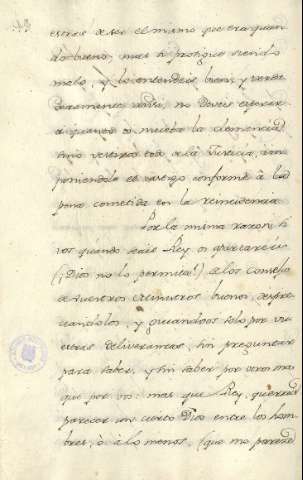 estras de ser el mismo que era quan
do bueno; mas si prosigue siendo
malo, y lo entendeis bien, y verda
deramente malo, no deveis esperar
a quando os mueba la clemencia,
sino vestiros todo a la Justicia, im
poniendole el castigo conforme à la
pena cometida en la reincidencia
Por la misma razon, hi
jos quando seais Rey os quitareis
(¡Dios no lo permita!) a los Consejos
de vuestros Ministros buenos, despre
ciandolos, y guiandoos solo por vu
estras deliverancias, sin preguntar
para saber, y sin saber por otros mas
que por vos: mas que Rey, querreis
parecer un cierto Dios entre los hom
bres, ò à lo menos, (que me parece